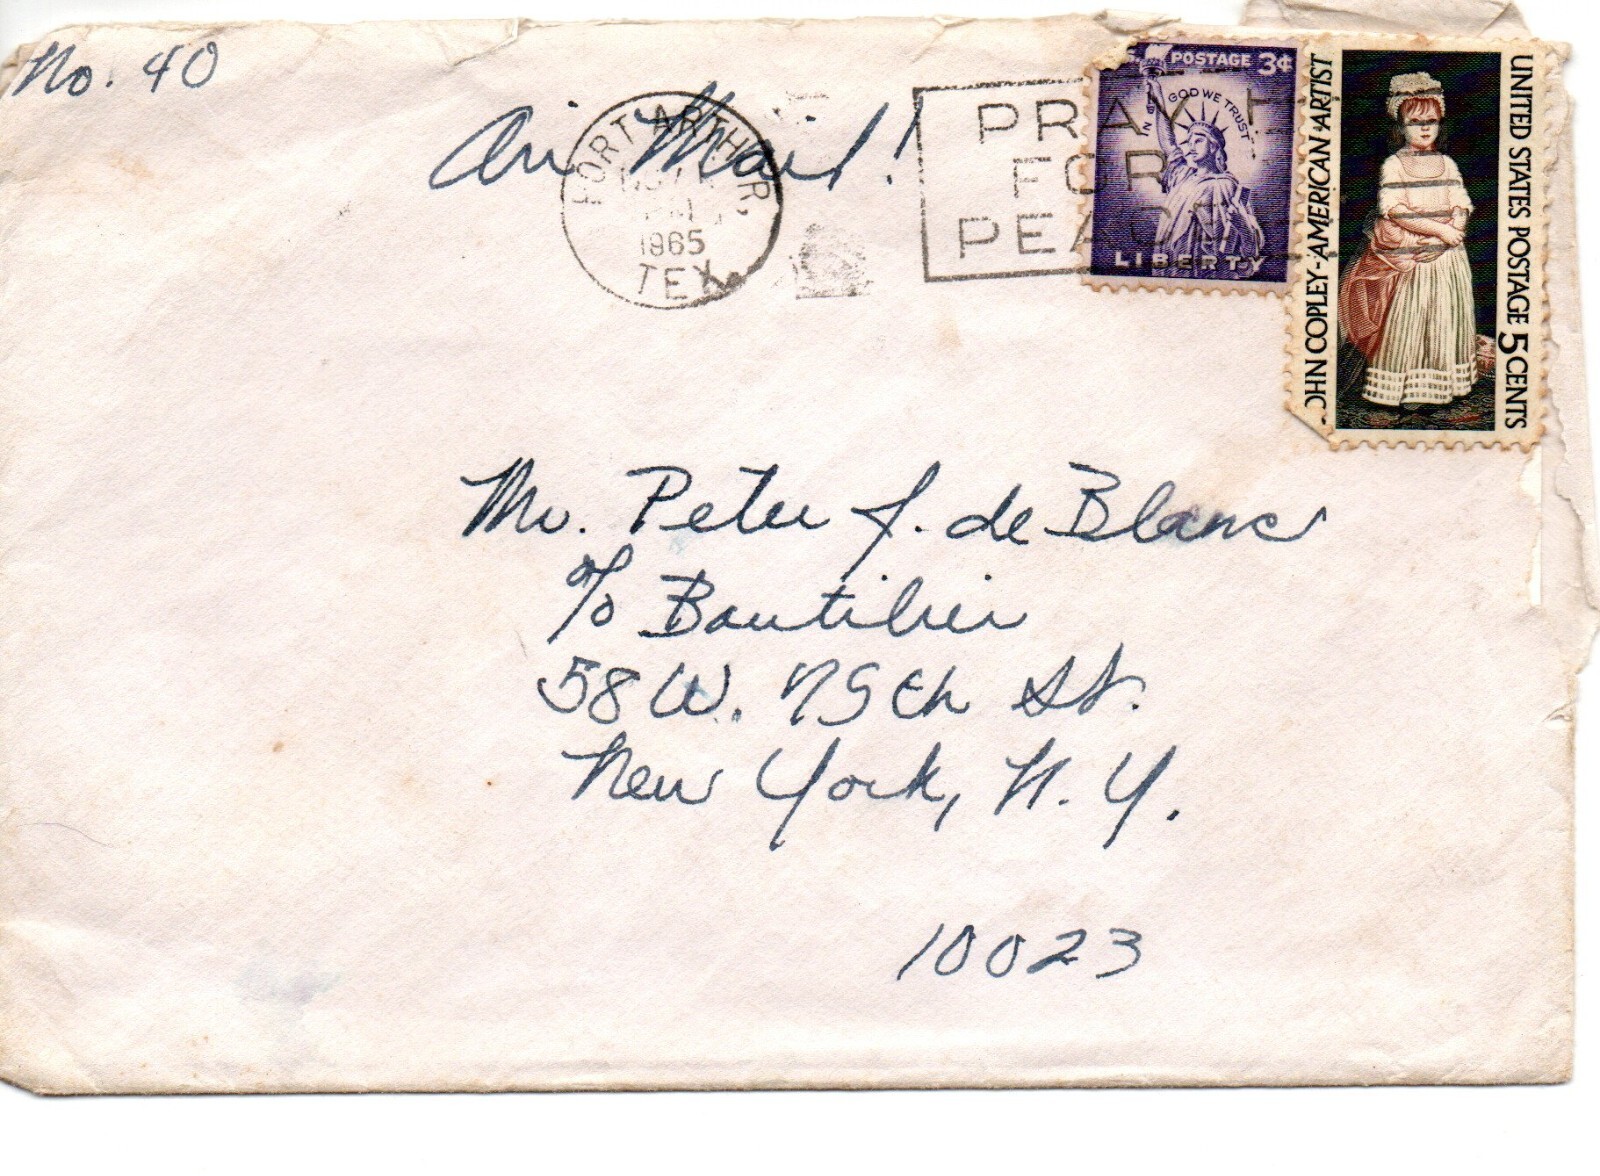 No. 40
Air Mail!
PORT ARTHUR,
1965
TEX.
PRAY
FOR
PEACE
POSTAGE 3¢
IN GOD WE TRUST
LIBERTY
OHN COPLEY-AMERICAN ARTIST
UNITED STATES POSTAGE 5 CENTS
Mr. Peter J. de Blanc
c/o Boutilier
58 W. 75th St.
New York, N.Y.
10023